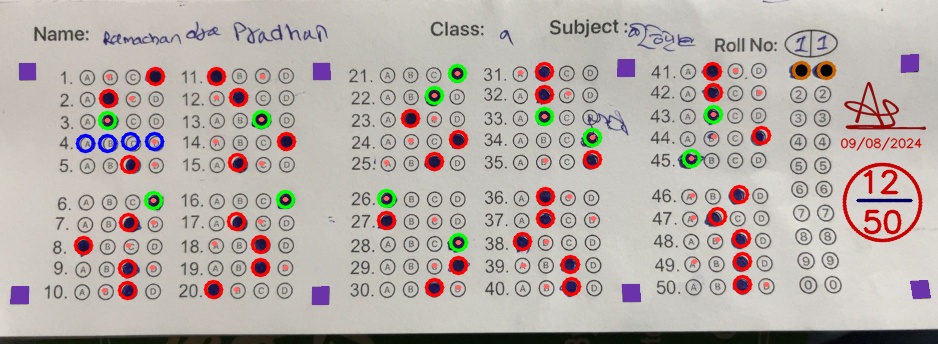 Name: Ramachandra Pradhan Class: 9 Subject :
Roll No: 1 1
1. A B C D
2. A B C D
3. A B C D
4. A B C D
5. A B C D
6. A B C D
7. A B C D
8. A B C D
9. A B C D
10. A B C D
11. A B C D
12. A B C D
13. A B C D
14. A B C D
15. A B C D
16. A B C D
17. A B C D
18. A B C D
19. A B C D
20. A B C D
21. A B C D
22. A B C D
23. A B C D
24. A B C D
25. A B C D
26. A B C D
27. A B C D
28. A B C D
29. A B C D
30. A B C D
31. A B C D
32. A B C D
33. A B C D
34. A B C D
35. A B C D
36. A B C D
37. A B C D
38. A B C D
39. A B C D
40. A B C D
41. A B C D
42. A B C D
43. A B C D
44. A B C D
45. A B C D
46. A B C D
47. A B C D
48. A B C D
49. A B C D
50. A B C D
2 2
3 3
4 4
5 5
6 6
7 7
8 8
9 9
0 0
09/08/2024
12
50